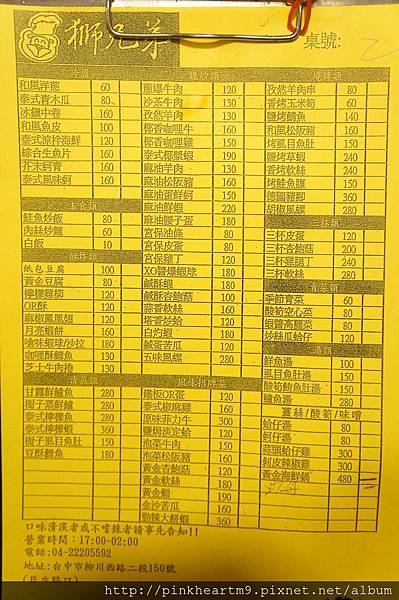 獅兄弟
桌號:
冷盤
和風洋蔥 60
泰式青木瓜 80
冰鎮中卷 160
和風魚皮 100
泰式涼拌海鮮 120
綜合生魚片 160
芥末蚵青 160
泰式風味蚵 160
主食類
鮭魚炒飯 80
肉絲炒麵 60
白飯 10
酥炸類
紙包豆腐 100
黃金豆腐 80
檸檬雞柳 120
OR酥 120
麻椒鳳凰翅 120
月亮蝦餅 160
嗆味蝦球/沙拉 180
咖哩酥鱈魚 130
芝士牛肉捲 130
清蒸類
甘露鮮鱸魚 280
樹子蒸鮮鱸 280
泰式檸檬魚 280
泰式檸檬蝦 280
樹子虱目魚肚 150
豆酥鱈魚 180
現炒類
蔥爆牛肉 120
沙茶牛肉 130
孜然羊肉 130
椰香咖哩牛 160
椰香咖哩雞 150
泰式椰漿蝦 190
麻油羊肉 130
麻油松阪豬 160
麻油蛋鮮蚵 150
麻油鮮蝦 220
麻油腰子蛋 180
宮保油條 80
宮保皮蛋 80
宮保雞丁 120
XO醬爆蝦球 180
鹹酥蝦 180
鹹酥杏鮑菇 100
蒜香鮮蚵 150
塔香炒蛤 120
白灼蝦 180
鹹蛋苦瓜 120
五味風螺 280
風味推薦菜
鐵板OR蛋 120
泰式椒麻雞 160
原味菲力牛 300
鹽焗淡定蛤 120
泡菜牛肉 150
泡菜松阪豬 160
黃金杏鮑菇 120
黃金軟絲 180
黃金蝦 190
金沙苦瓜 160
勁辣大餅蝦 360
燒烤類
孜然羊肉串 80
香烤玉米筍 60
鹽烤鯖魚 140
和風松阪豬 160
烤虱目魚肚 150
鹽烤草蝦 240
香烤軟絲 240
烤鮭魚腹 150
德國豬腳 360
胡椒風螺 280
三杯類
三杯皮蛋 120
三杯杏鮑菇 200
三杯雞腿丁 240
三杯軟絲 280
青菜類
季節青菜 60
酸筍空心菜 80
蝦醬高麗菜 80
炒絲瓜蛤仔 120
湯類
鮮魚湯 100
虱目魚肚湯 150
酸筍鮪魚肚湯 150
鱸魚湯 280
薑絲/酸筍/味噌
蛤仔湯 80
蚵仔湯 80
蒜頭蛤仔雞 300
剝皮辣椒雞 300
黃金海鮮鍋 480
口味清淡者或不嗜辣者請事先告知!!
營業時間：17:00-02:00
電話:04-22205592
地址:台中市柳川西路二段150號
http://pinkheartm9.pixnet.net/album